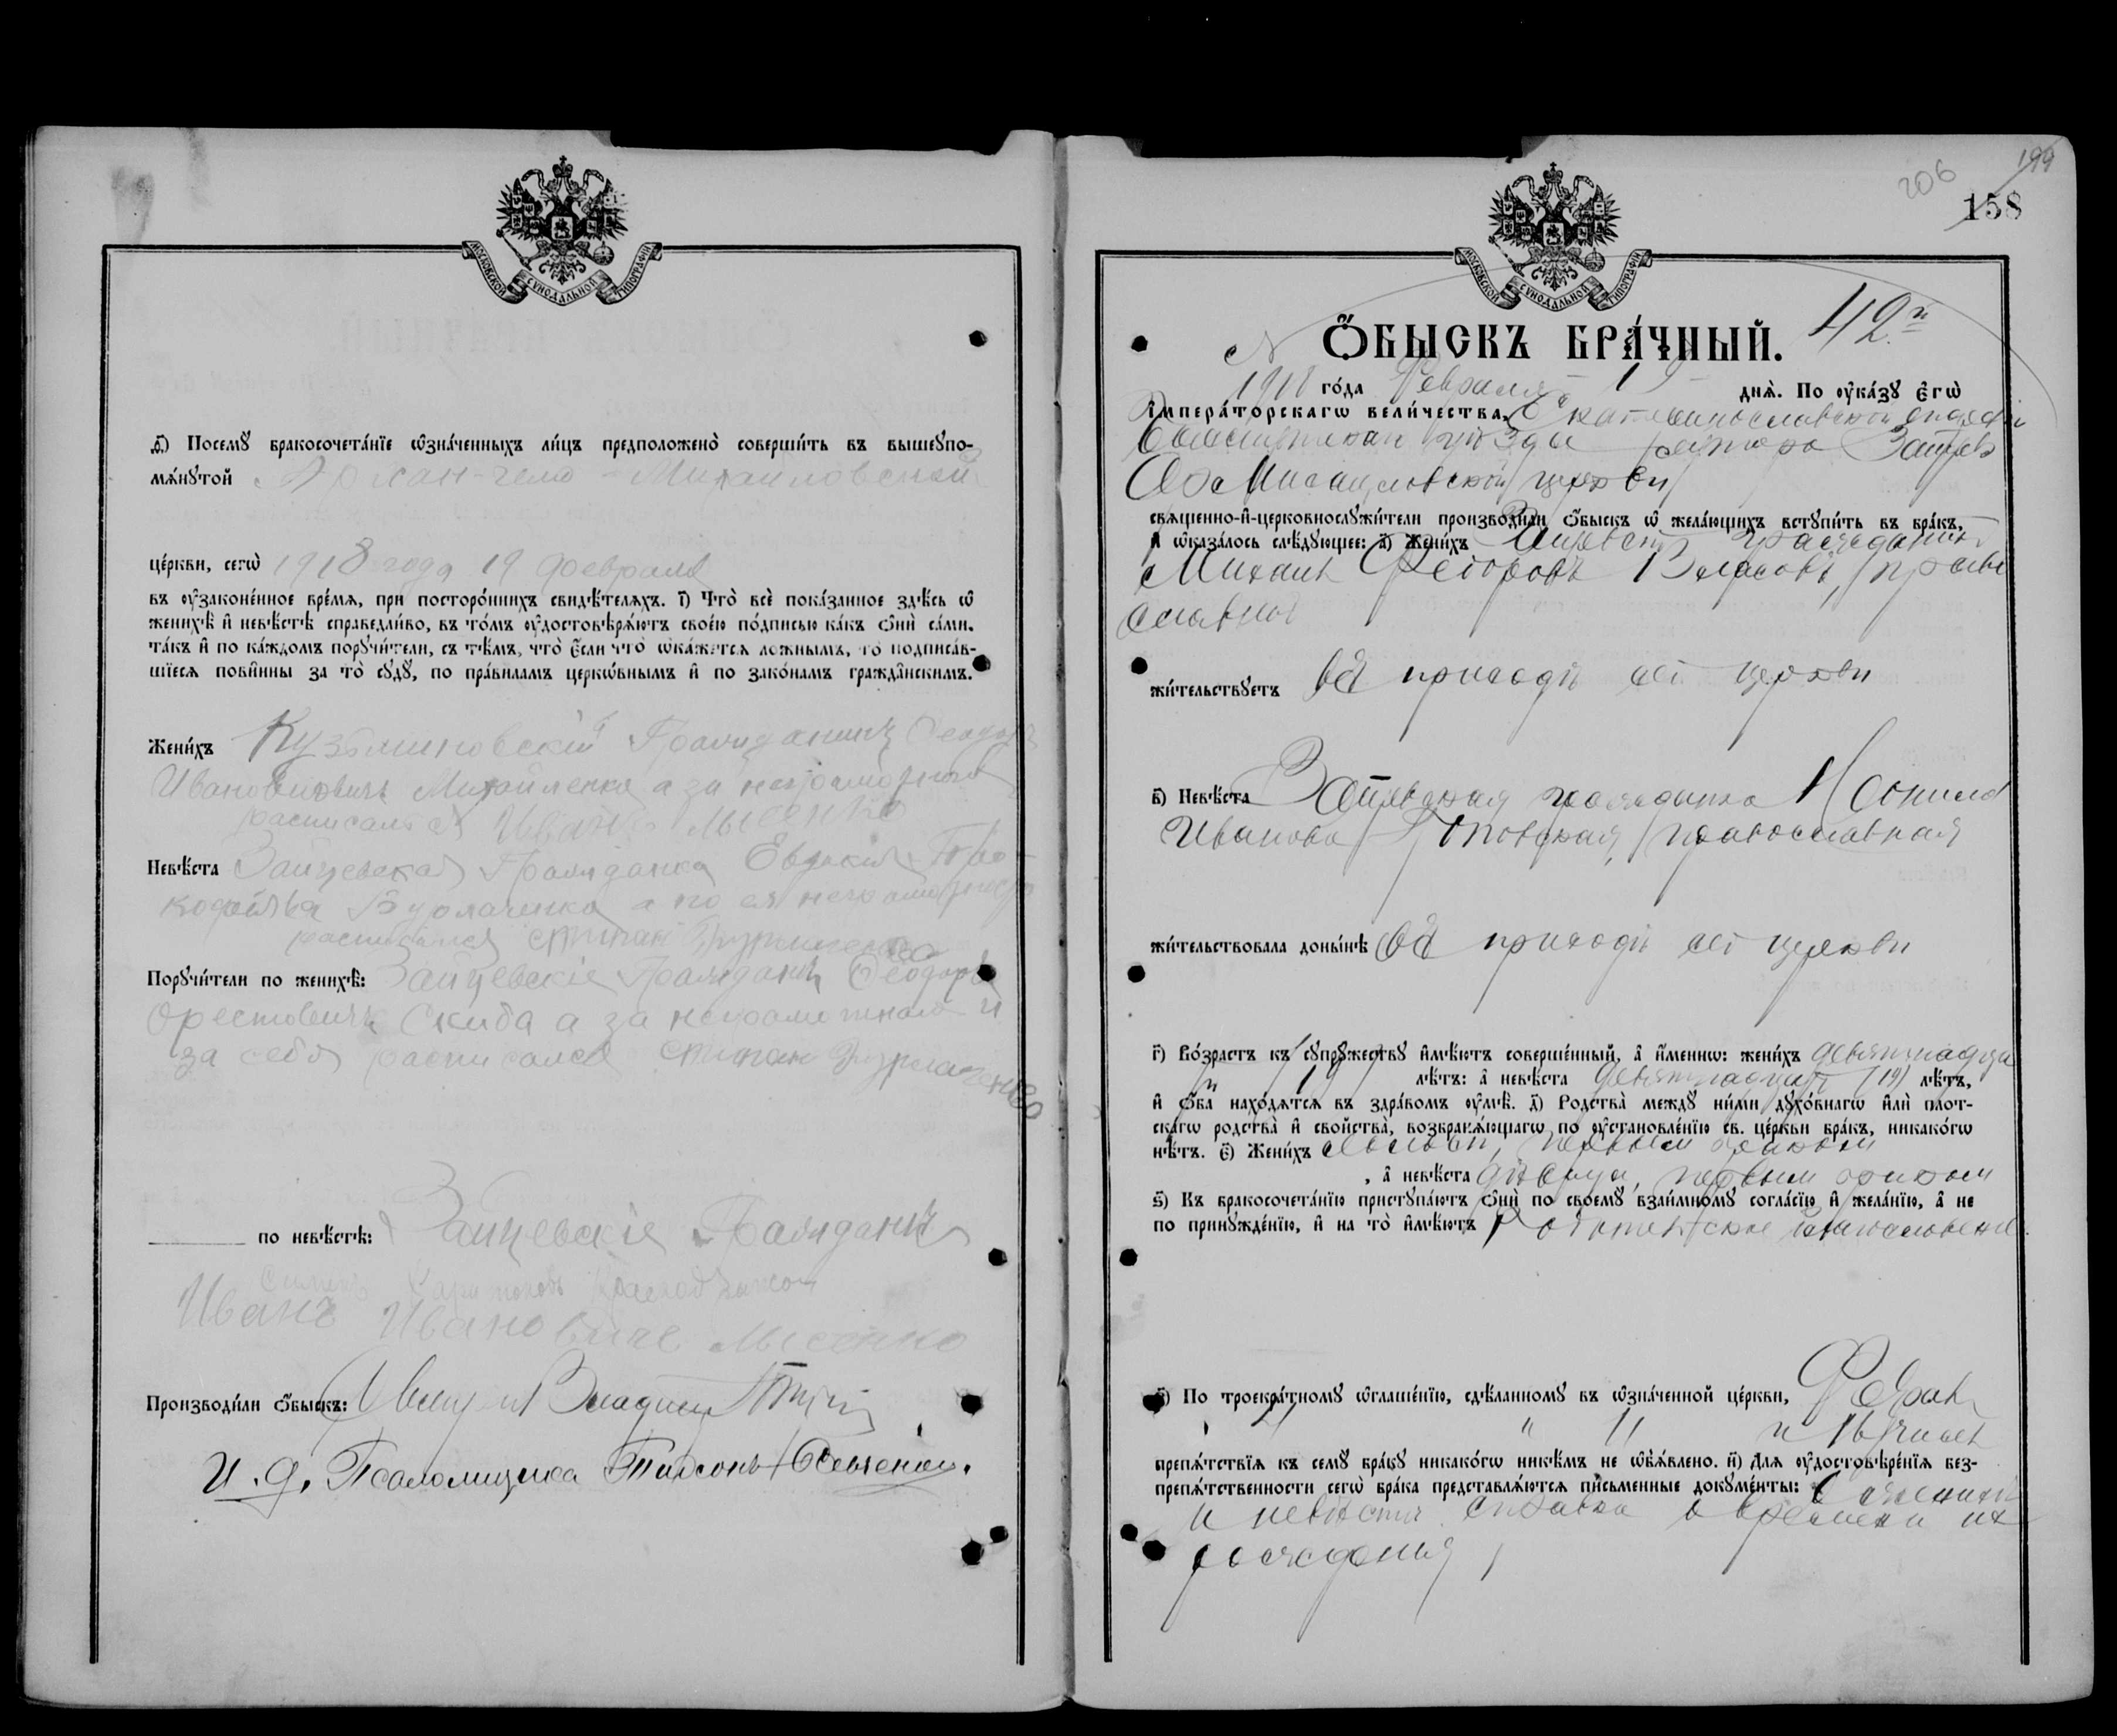 МОСКОВСКОЙ СѴНОДАЛЬНОЙ ТИПОГРАФІИ
ѳ҃) Посемꙋ̀ бракосочета́нїе ѡ҆зна́ченныхъ ли́цъ предположено̀ соверши́ть въ вышеꙋпо-
мѧ́нꙋтой Архан-гело - Михайловской
це́ркви, сегѡ̀ 1918 года 19 февраля
въ ᲂу҆законе́нное вре́мѧ, при посторо́ннихъ свидѣ́телѧхъ. і҃) Что̀ всѐ пока́занное здѣ́сь ѡ҆
женихѣ̀ и҆ невѣ́стѣ справедли́во, въ то́мъ ᲂу҆достовѣрѧ́ютъ свое́ю по́дписью ка́къ ѻ҆нѝ са́ми.
та́къ и҆ по ка́ждомъ порꙋчи́тели, съ тѣ́мъ, что̀ є҆́сли что̀ ѡ҆ка́жетсѧ ло́жнымъ, то̀ подписа́в-
шїесѧ пови́нны за то̀ сꙋдꙋ̀, по пра́виламъ церкѡ́внымъ и҆ по зако́намъ гражда́нскимъ.
Жени́хъ Кузьминовскій Гражданинъ Ѳеодоръ
Ивановичъ Михайленко а за неграмотного
расписался Иванъ Мысенко
Невѣ́ста Зайцевская Гражданка Евдокія Про-
кофьева Бурлаченко а по ея неграмотности
расписался степан Бурлаченко
Порꙋчи́тели по женихѣ̀: Зайцевскіе Граждане Ѳеодоръ
Орестовичъ Скиба а за неграмотного и
за себя расписался степан Бурлаченко
по невѣ́стѣ: Зайцевскіе Граждане
Харитоновъ
Иванъ Ивановичъ Мысенко
Производи́ли ѻ҆́быскъ: Свящ-къ
И. д. Псаломщика Тихонъ
206
199
158
МОСКОВСКОЙ СѴНОДАЛЬНОЙ ТИПОГРАФІИ
Ѻ҆́БЫСКЪ БРА́ЧНЫЙ. 42й
1918 го́да Февраля 19 днѧ̀. По ᲂу҆ка́зꙋ є҆гѡ̀
и҆мпера́торскагѡ вели́чества, Екатеринославской епархіи
уѣзда хутора Зайцев
церкви
свѧще́нно-и҆-церковнослꙋжи́тели производи́ли ѻ҆́быскъ ѡ҆ жела́ющихъ встꙋпи́ть въ бра́къ,
и҆ ѡ҆каза́лось слѣ́дꙋющее: а҃) Жени́хъ Зайцевскій гражданинъ
Михаилъ Ѳедоровъ Власовъ, право
славный
жи́тельствꙋетъ въ приходѣ сей церкви
в҃) Невѣ́ста Зайцевская гражданка Неонила
Иванова православная
жи́тельствовала доны́нѣ въ приходѣ сей церкви
г҃) Во́зрастъ къ сꙋпрꙋ́жествꙋ и҆мѣ́ютъ соверше́нный, а҆ и҆́меннѡ: жени́хъ девятнадца
ти 19 лѣ́тъ: а҆ невѣ́ста девятнадцати (19) лѣ́тъ,
и҆ ѻ҆́ба нахо́дѧтсѧ въ здра́вомъ ᲂу҆мѣ̀. д҃) Родства̀ междꙋ̀ ни́ми дꙋхо́внагѡ и҆лѝ плот-
ска́гѡ родства̀ и҆ сво́йства, возбранѧ́ющагѡ по ᲂу҆становле́нїю св. це́ркви бра́къ, никако́гѡ
нѣ́тъ. є҃) Жени́хъ холостъ, первымъ бракомъ
, а҆ невѣ́ста дѣвица, первымъ бракомъ
ѕ҃) Къ бракосочета́нїю пристꙋпа́ютъ ѻ҆нѝ по своемꙋ̀ взаи́мномꙋ согла́сїю и҆ жела́нїю, а҆ не
по принꙋжде́нїю, и҆ на то̀ и҆мѣ́ютъ Родительское благословеніе
з҃) По троекра́тномꙋ ѡ҆глаше́нїю, сдѣ́ланномꙋ въ ѡ҆зна́ченной це́ркви, Февр
4 " 11 и 18 числ
препѧ́тствїѧ къ семꙋ̀ бра́кꙋ никако́гѡ никѣ́мъ не ѡ҆б̾ѧ́влено. и҃) Длѧ ᲂу҆достовѣре́нїѧ без-
препѧ́тственности сегѡ̀ бра́ка представлѧ́ютсѧ пи́сьменные докꙋме́нты: О женихѣ
и невѣстѣ справка о времени их
рожденія